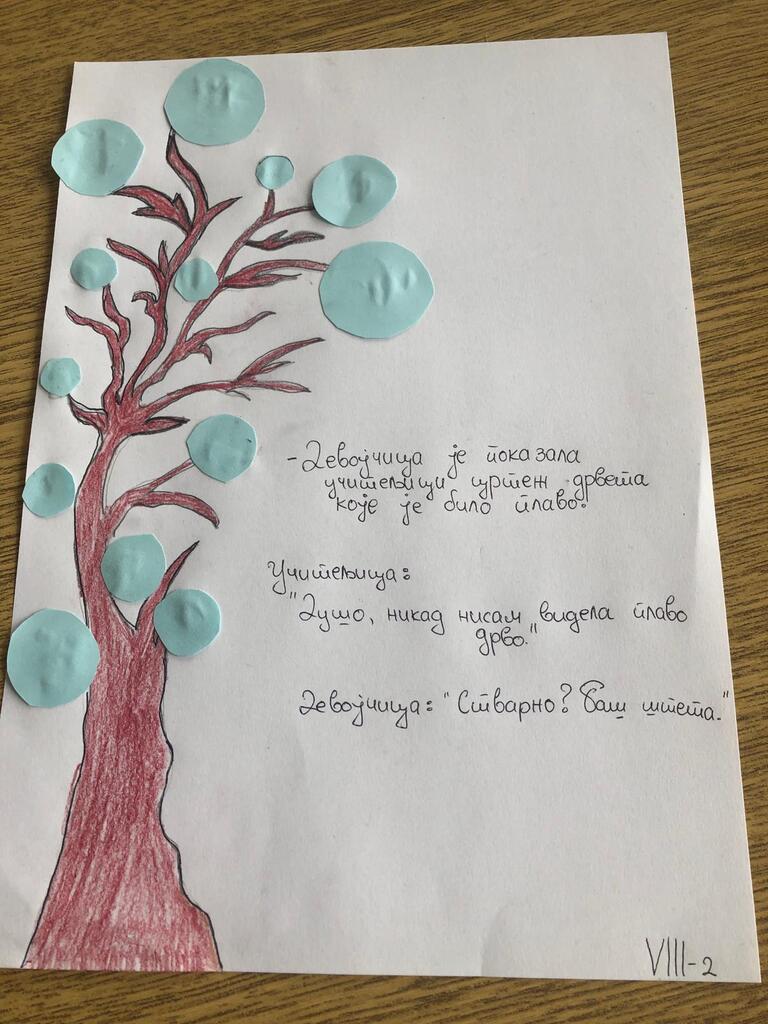 - Девојчица је показала
учитељици цртеж дрвета
које је било плаво.
Учитељица:
"Душо, никад нисам видела плаво
дрво."
Девојчица: "Стварно? Баш штета."
VIII-2